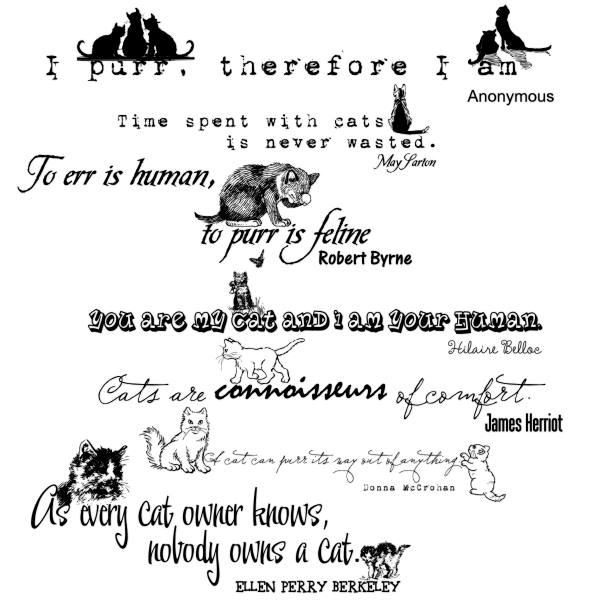 I purr, therefore I am
Anonymous
Time spent with cats
is never wasted.
May Sarton
To err is human,
to purr is feline
Robert Byrne
you are my cat and i am your Human.
Hilaire Belloc
Cats are connoisseurs of comfort.
James Herriot
A cat can purr its way out of anything
Donna McCrohan
As every cat owner knows,
nobody owns a cat.
ELLEN PERRY BERKELEY